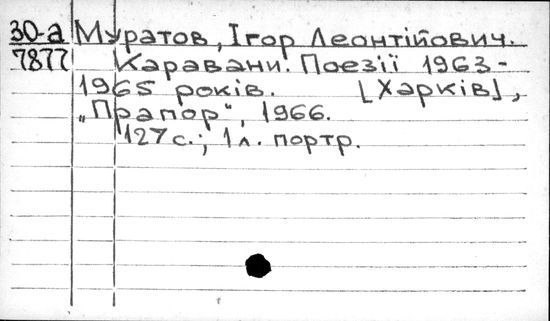 30-а Муратов, Ігор Леонтійович.
7877 Каравани. Поезії 1963-
1965 років. [Харків],
„Прапор", 1966.
127 с.; 1 л. портр.